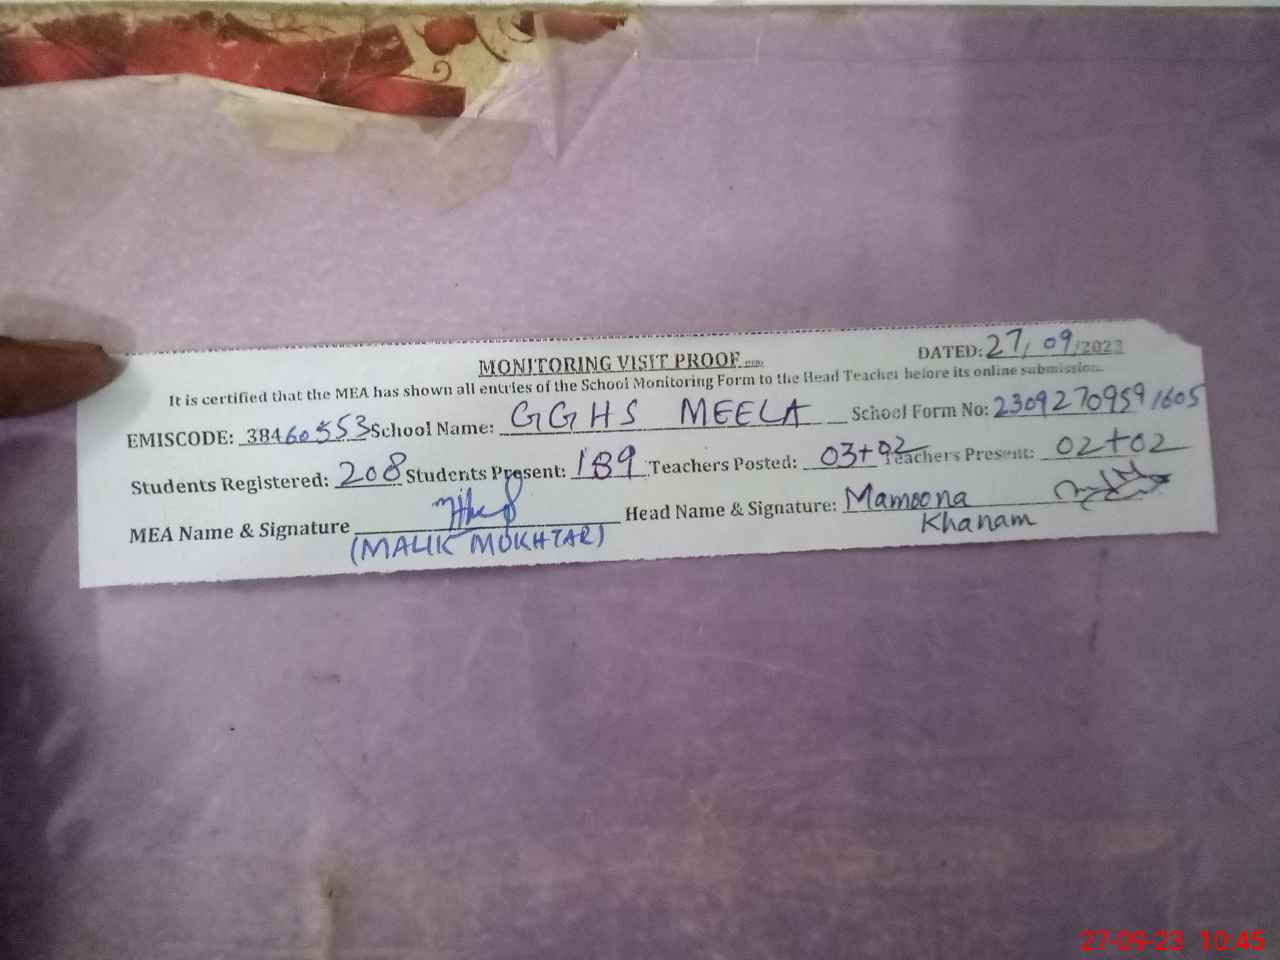 MONITORING VISIT PROOF
DATED: 27/09/2023
It is certified that the MEA has shown all entries of the School Monitoring Form to the Head Teacher before its online submission.
EMISCODE: 38460553 School Name: GGHS MEELA School Form No: 23092709591605
Students Registered: 208 Students Present: 189 Teachers Posted: 03+02 Teachers Present: 02+02
MEA Name & Signature Head Name & Signature: Mamoona
(MALIK MUKHTAR) Khanam
27-09-23 10:45